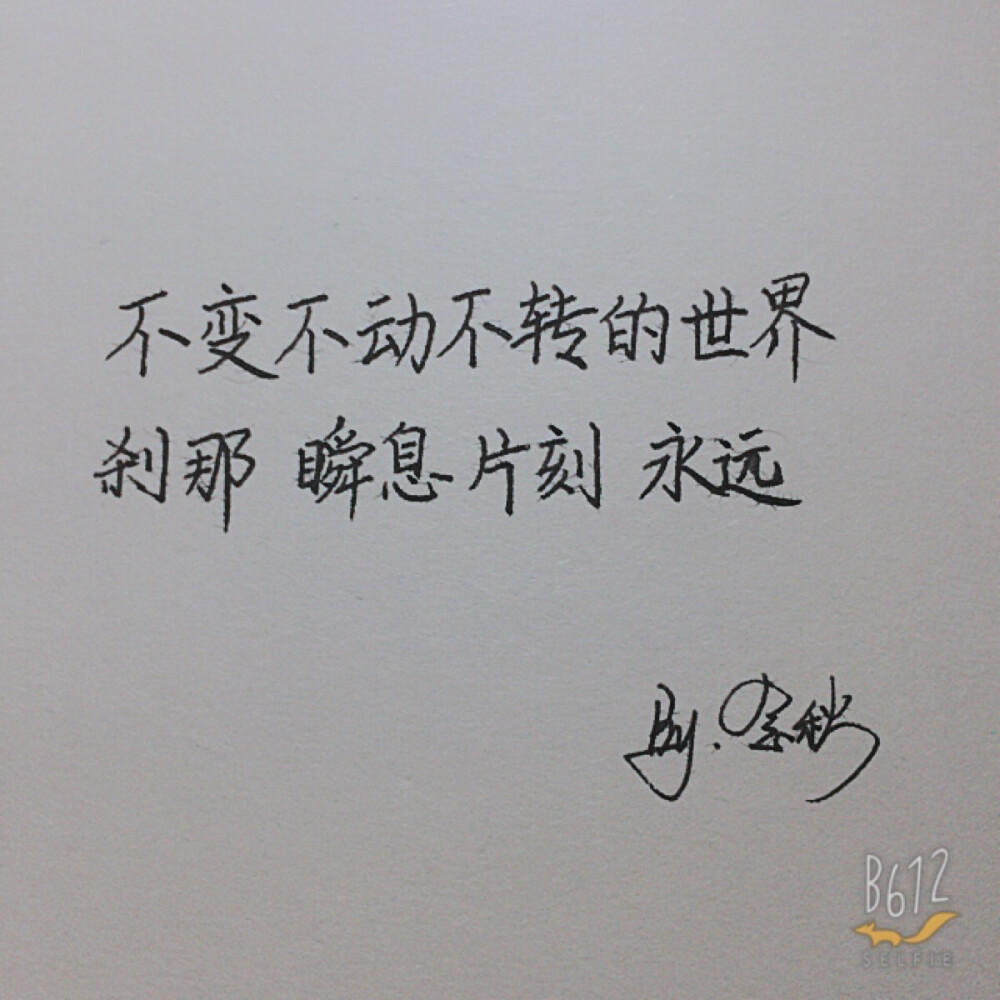 不变不动不转的世界
刹那 瞬息片刻 永远
By.
B612
SELFIE